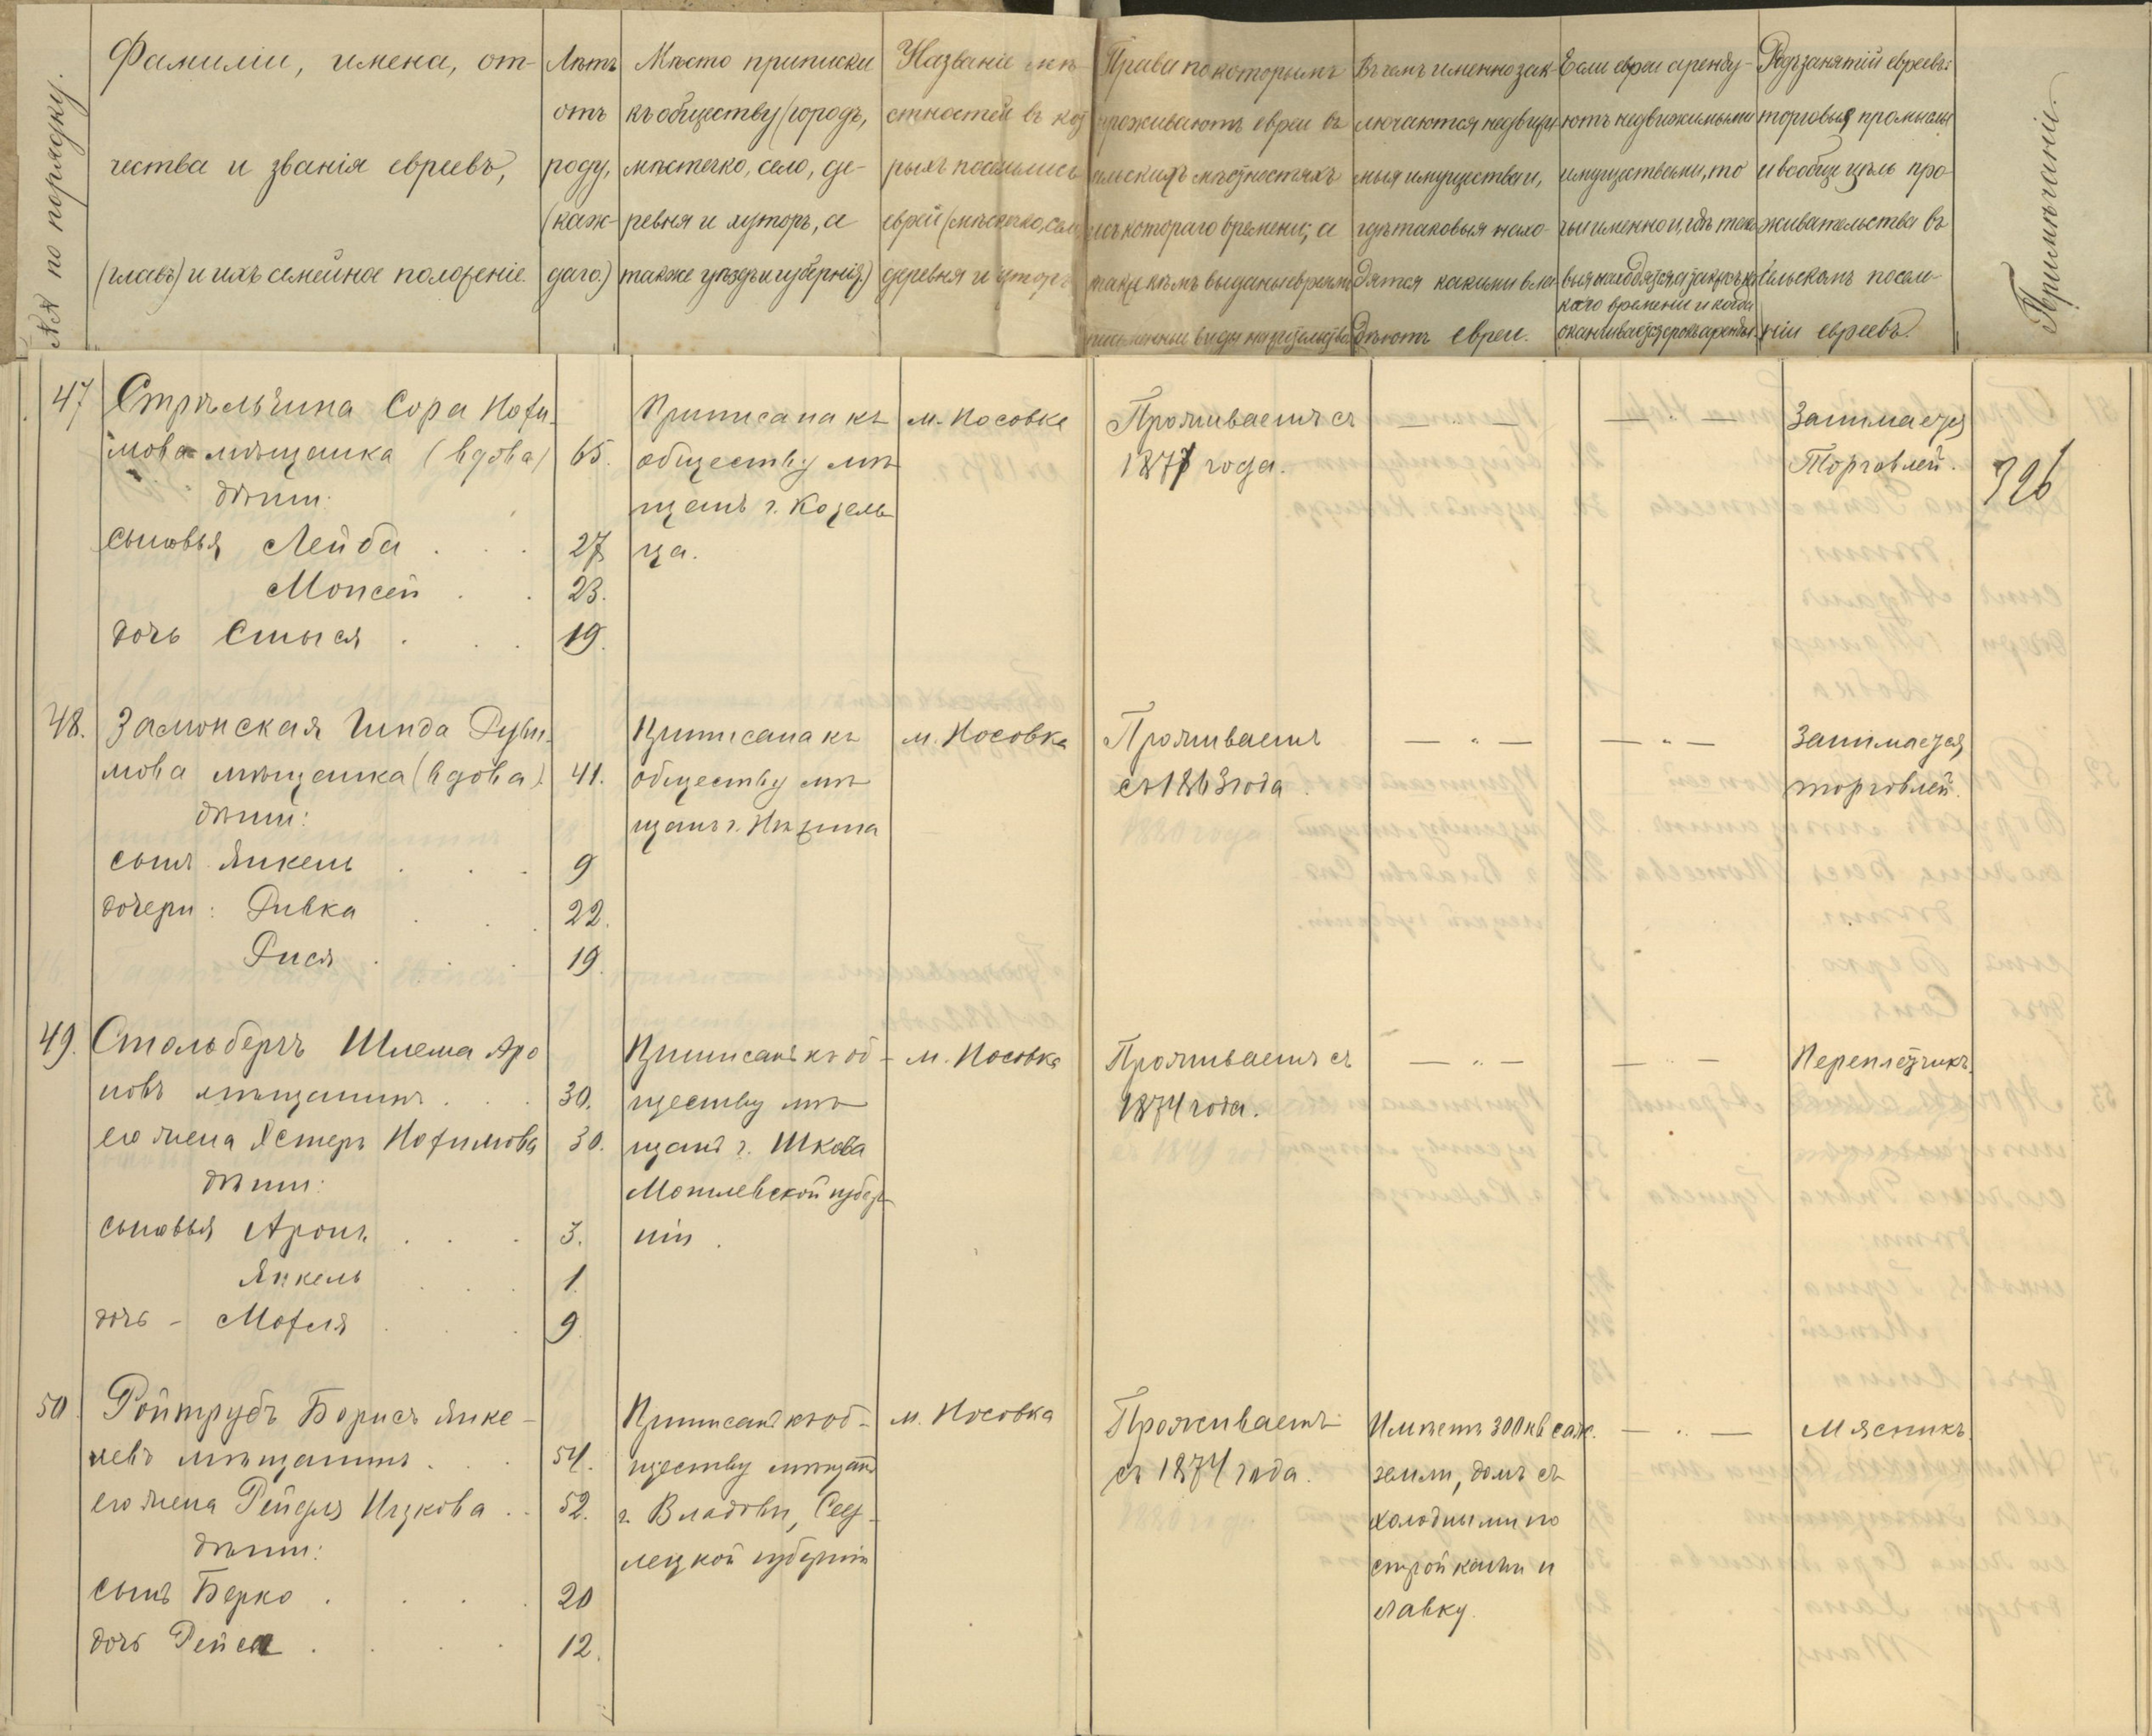 №№ по порядку.
Фамиліи, имена, от-
чества и званія евреевъ,
(главъ) и ихъ семейное положеніе.
Лѣтъ
отъ
роду,
(каж-
даго.)
Мѣсто приписки
къ обществу (городъ,
мѣстечко, село, де-
ревня и хуторъ, а
также уѣздъ и губернія.)
Названіе мѣ-
стностей въ кот
рыхъ поселились
евреи (мѣстечко, село
деревня и хуторъ
Права по которымъ
проживаютъ евреи въ
сельскихъ мѣстностяхъ
и съ котораго времени; а
также кѣмъ выданы евреямъ
письменные виды на жительство
Въ чемъ именно зак-
лючаются недвижи
мыя имущества и,
гдѣ таковыя нахо-
дятся какими вла-
дѣютъ евреи.
Если евреи аренду-
ютъ недвижимыми
имуществами, то
чьи именно и, гдѣ тако
выя находятся, а также съ ка
каго времени и когда
оканчивается срокъ аренды.
Родъ занятій евреевъ:
торговыя промыслы
и вообще цѣль про
живательства въ
сельскомъ посел-
ніи евреевъ.
Примѣчаніе.
47 Стрѣльчина Сора Нохи-
мова мѣщанка (вдова) 65.
дѣти:
сыновья Лейба . . . 27
Моисей . . 23.
дочь Смыся . . . 19.
Приписана къ
обществу мѣ
щанъ г. Козель
ца.
м. Носовке
Проживаетъ съ
1877 года.
— " —
— " —
Занимается
Торговлей.
326
48. Замонская Гинда Руви-
мова мѣщанка (вдова). 41.
дѣти:
сынъ Янкель . . . 9
дочери: Ривка . . . 22.
Рися . . . 19.
Приписана къ
обществу мѣ
щанъ г. Нѣжина
м. Носовка
Проживаетъ
съ 1863 года.
— " —
— " —
Занимается
торговлей.
49. Стальбергъ Шлема Аро
новъ мѣщанинъ . . . 30.
его жена Эстеръ Нохимова 30.
дѣти:
сыновья Аронъ . . . 3.
Янкель . . . 1.
дочь - Мохля . . . 9
Приписанъ къ об-
ществу мѣ
щанъ г. Шклова
Могилевской губер
ніи.
м. Носовка
Проживаетъ съ
1874 года.
— " —
— " —
Переплетчикъ.
50. Ройтрубъ Борисъ Янке-
левъ мѣщанинъ . . . 54.
его жена Рейдля Ицкова . . 52.
дѣти:
сынъ Берко . . . . 20
дочь Рейся . . . . 12.
Приписанъ къ об-
ществу мѣщанъ
г. Владовы, Сед-
лецкой губерніи
м. Носовка
Проживаетъ
съ 1874 года.
Имѣетъ 300 кв саж.
земли, домъ съ
холодными по
стройками и
лавку.
— " —
Мясникъ.